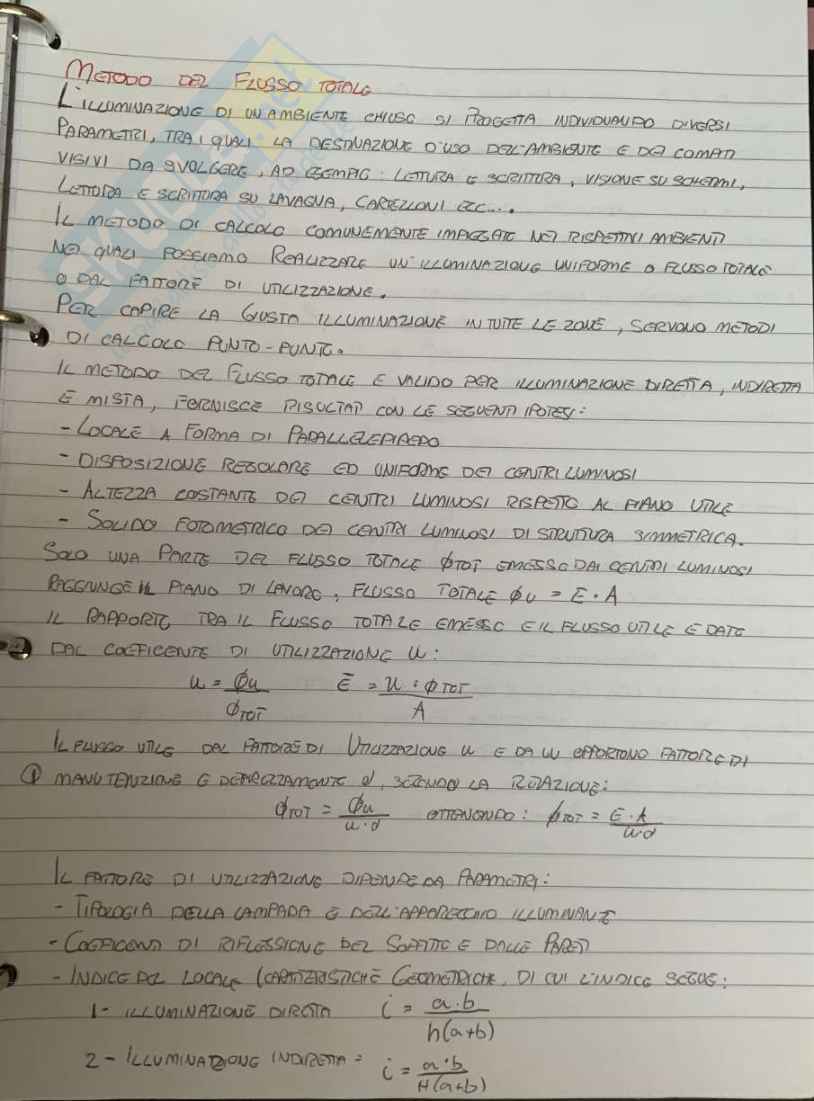 METODO DEL FLUSSO TOTALE
L'ILLUMINAZIONE DI UN AMBIENTE CHIUSO SI PROGETTA INDIVIDUANDO DIVERSI
PARAMETRI, TRA I QUALI LA DESTINAZIONE D'USO DELL'AMBIENTE E DEI COMPITI
VISIVI DA SVOLGERE, AD ESEMPIO: LETTURA E SCRITTURA, VISIONE SU SCHERMI,
LETTURA E SCRITTURA SU LAVAGNA, CARTELLONI ECC....
IL METODO DI CALCOLO COMUNEMENTE IMPIEGATO NEI RISPETTIVI AMBIENTI
NEI QUALI POSSIAMO REALIZZARE UN'ILLUMINAZIONE UNIFORME O FLUSSO TOTALE
O DAL FATTORE DI UTILIZZAZIONE.
PER CAPIRE LA GIUSTA ILLUMINAZIONE IN TUTTE LE ZONE, SERVONO METODI
DI CALCOLO PUNTO-PUNTO.
IL METODO DEL FLUSSO TOTALE E VALIDO PER ILLUMINAZIONE DIRETTA, INDIRETTA
E MISTA, FORNISCE RISULTATI CON LE SEGUENTI IPOTESI:
- LOCALE A FORMA DI PARALLELEPIPEDO
- DISPOSIZIONE REGOLARE ED UNIFORME DEI CENTRI LUMINOSI
- ALTEZZA COSTANTE DEI CENTRI LUMINOSI RISPETTO AL PIANO UTILE
- SOLIDO FOTOMETRICO DEI CENTRI LUMINOSI DI STRUTTURA SIMMETRICA.
SOLO UNA PARTE DEL FLUSSO TOTALE ϕTOT EMESSO DAI CENTRI LUMINOSI
RAGGIUNGE IL PIANO DI LAVORO, FLUSSO TOTALE ϕu = E · A
IL RAPPORTO TRA IL FLUSSO TOTALE EMESSO E IL FLUSSO UTILE E DATO
DAL COEFICENTE DI UTILIZZAZIONE U:
u = ϕu / ϕTOT    Ē = u · ϕTOT / A
IL FLUSSO UTILE DAL FATTORE DI UTILIZZAZIONE U E DA UN OPPORTUNO FATTORE DI
MANUTENZIONE E DEPREZZAMENTO d, SECONDO LA RELAZIONE:
ϕTOT = ϕu / u · d    OTTENENDO: ϕTOT = E · A / u · d
IL FATTORE DI UTILIZZAZIONE DIPENDE DA PARAMETRI:
- TIPOLOGIA DELLA LAMPADA E DELL'APPARECCHIO ILLUMINANTE
- COEFICENTI DI RIFLESSIONE DEL SOFFITTO E DALLE PARETI
- INDICE DEL LOCALE (CARATTERISTICHE GEOMETRICHE, DI CUI L'INDICE SEGUE:
1- ILLUMINAZIONE DIRETTA    i = a · b / h(a+b)
2- ILLUMINAZIONE INDIRETTA =    i = a · b / H(a+b)